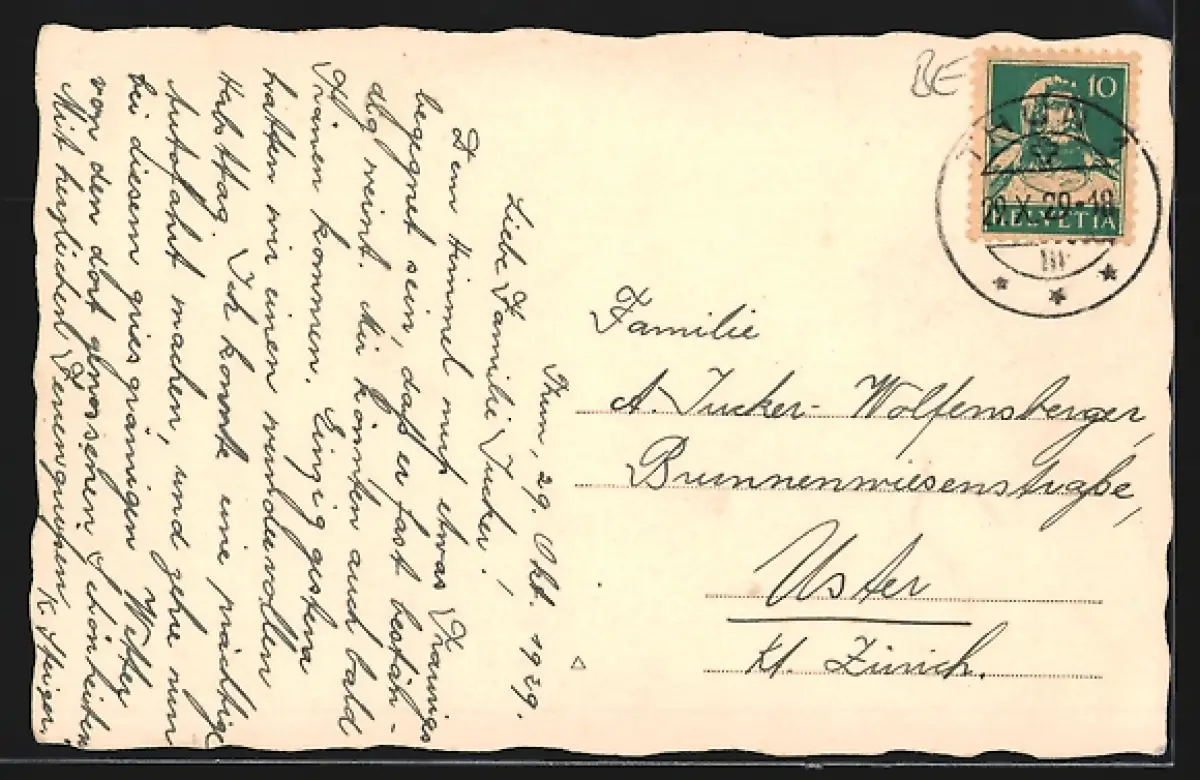 BE
10
HELVETIA
29.X.29-18
III
Familie
A. Jucker-Wolfensberger,
Brunnenwiesenstraße,
Uster
Kt. Zürich.
Thun, 29. Okt. 1929.
Liebe Familie Jucker!
Dem Himmel muß etwas Trauriges
begegnet sein, daß er fast bestän-
dig weint. Mir könnten auch bald
Tränen kommen. Einzig gestern
hatten wir einen wundervollen
Halbtag. Ich konnte eine prächtige
Autofahrt machen, und zehre nun
bei diesem griesgrämigen Wetter
von den dort genossenen Schönheiten.
Mit herzlichen Feriengrüßen,
K. Steiger.